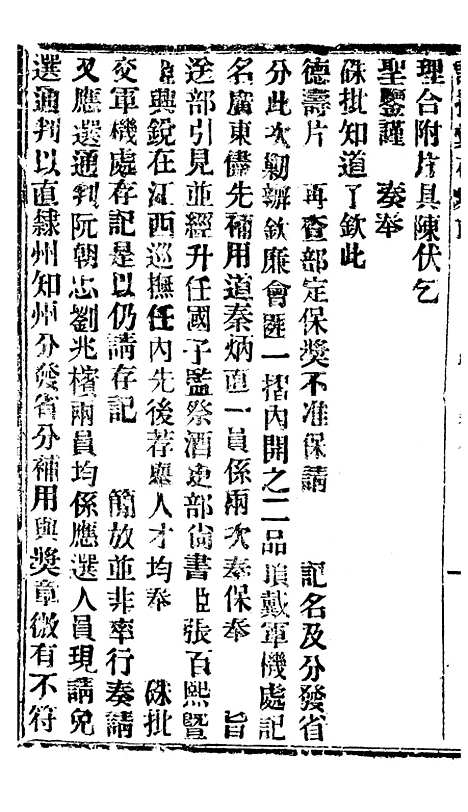 理合附片具陳伏乞
聖鑒謹　奏奉
硃批知道了欽此
德壽片　再查部定保獎不准保請　記名及分發省
分此次剿辦欽廉會匪一摺內開之二品頂戴軍機處記
名廣東儘先補用道秦炳直一員係兩次奉保奉　旨
送部引見並經升任國子監祭酒吏部尚書臣張百熙暨
臣興銳在江西巡撫任內先後荐舉人才均奉　硃批
交軍機處存記是以仍請存記　簡放並非率行奏請
又應選通判阮朝忠劉兆檳兩員均係應選人員現請免
選通判以直隸州知州分發省分補用與獎章微有不符